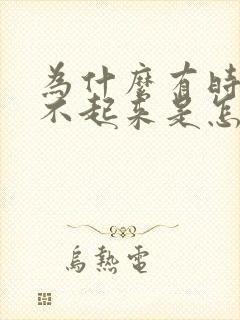 為什麼有時
不起來是怎
烏熱電